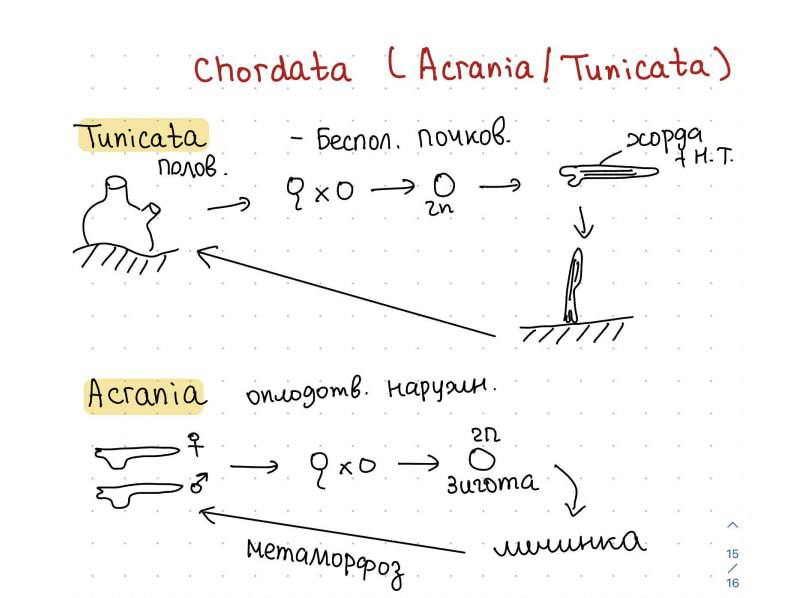 Chordata (Acrania/Tunicata)
Tunicata - Беспол. почков. хорда
полов. + Н.Т.
♀ x O → O →
2n
Acrania оплодотв. наружн.
♀
♂
♀ x O → O
2n
зигота
личинка
метаморфоз
15
/
16